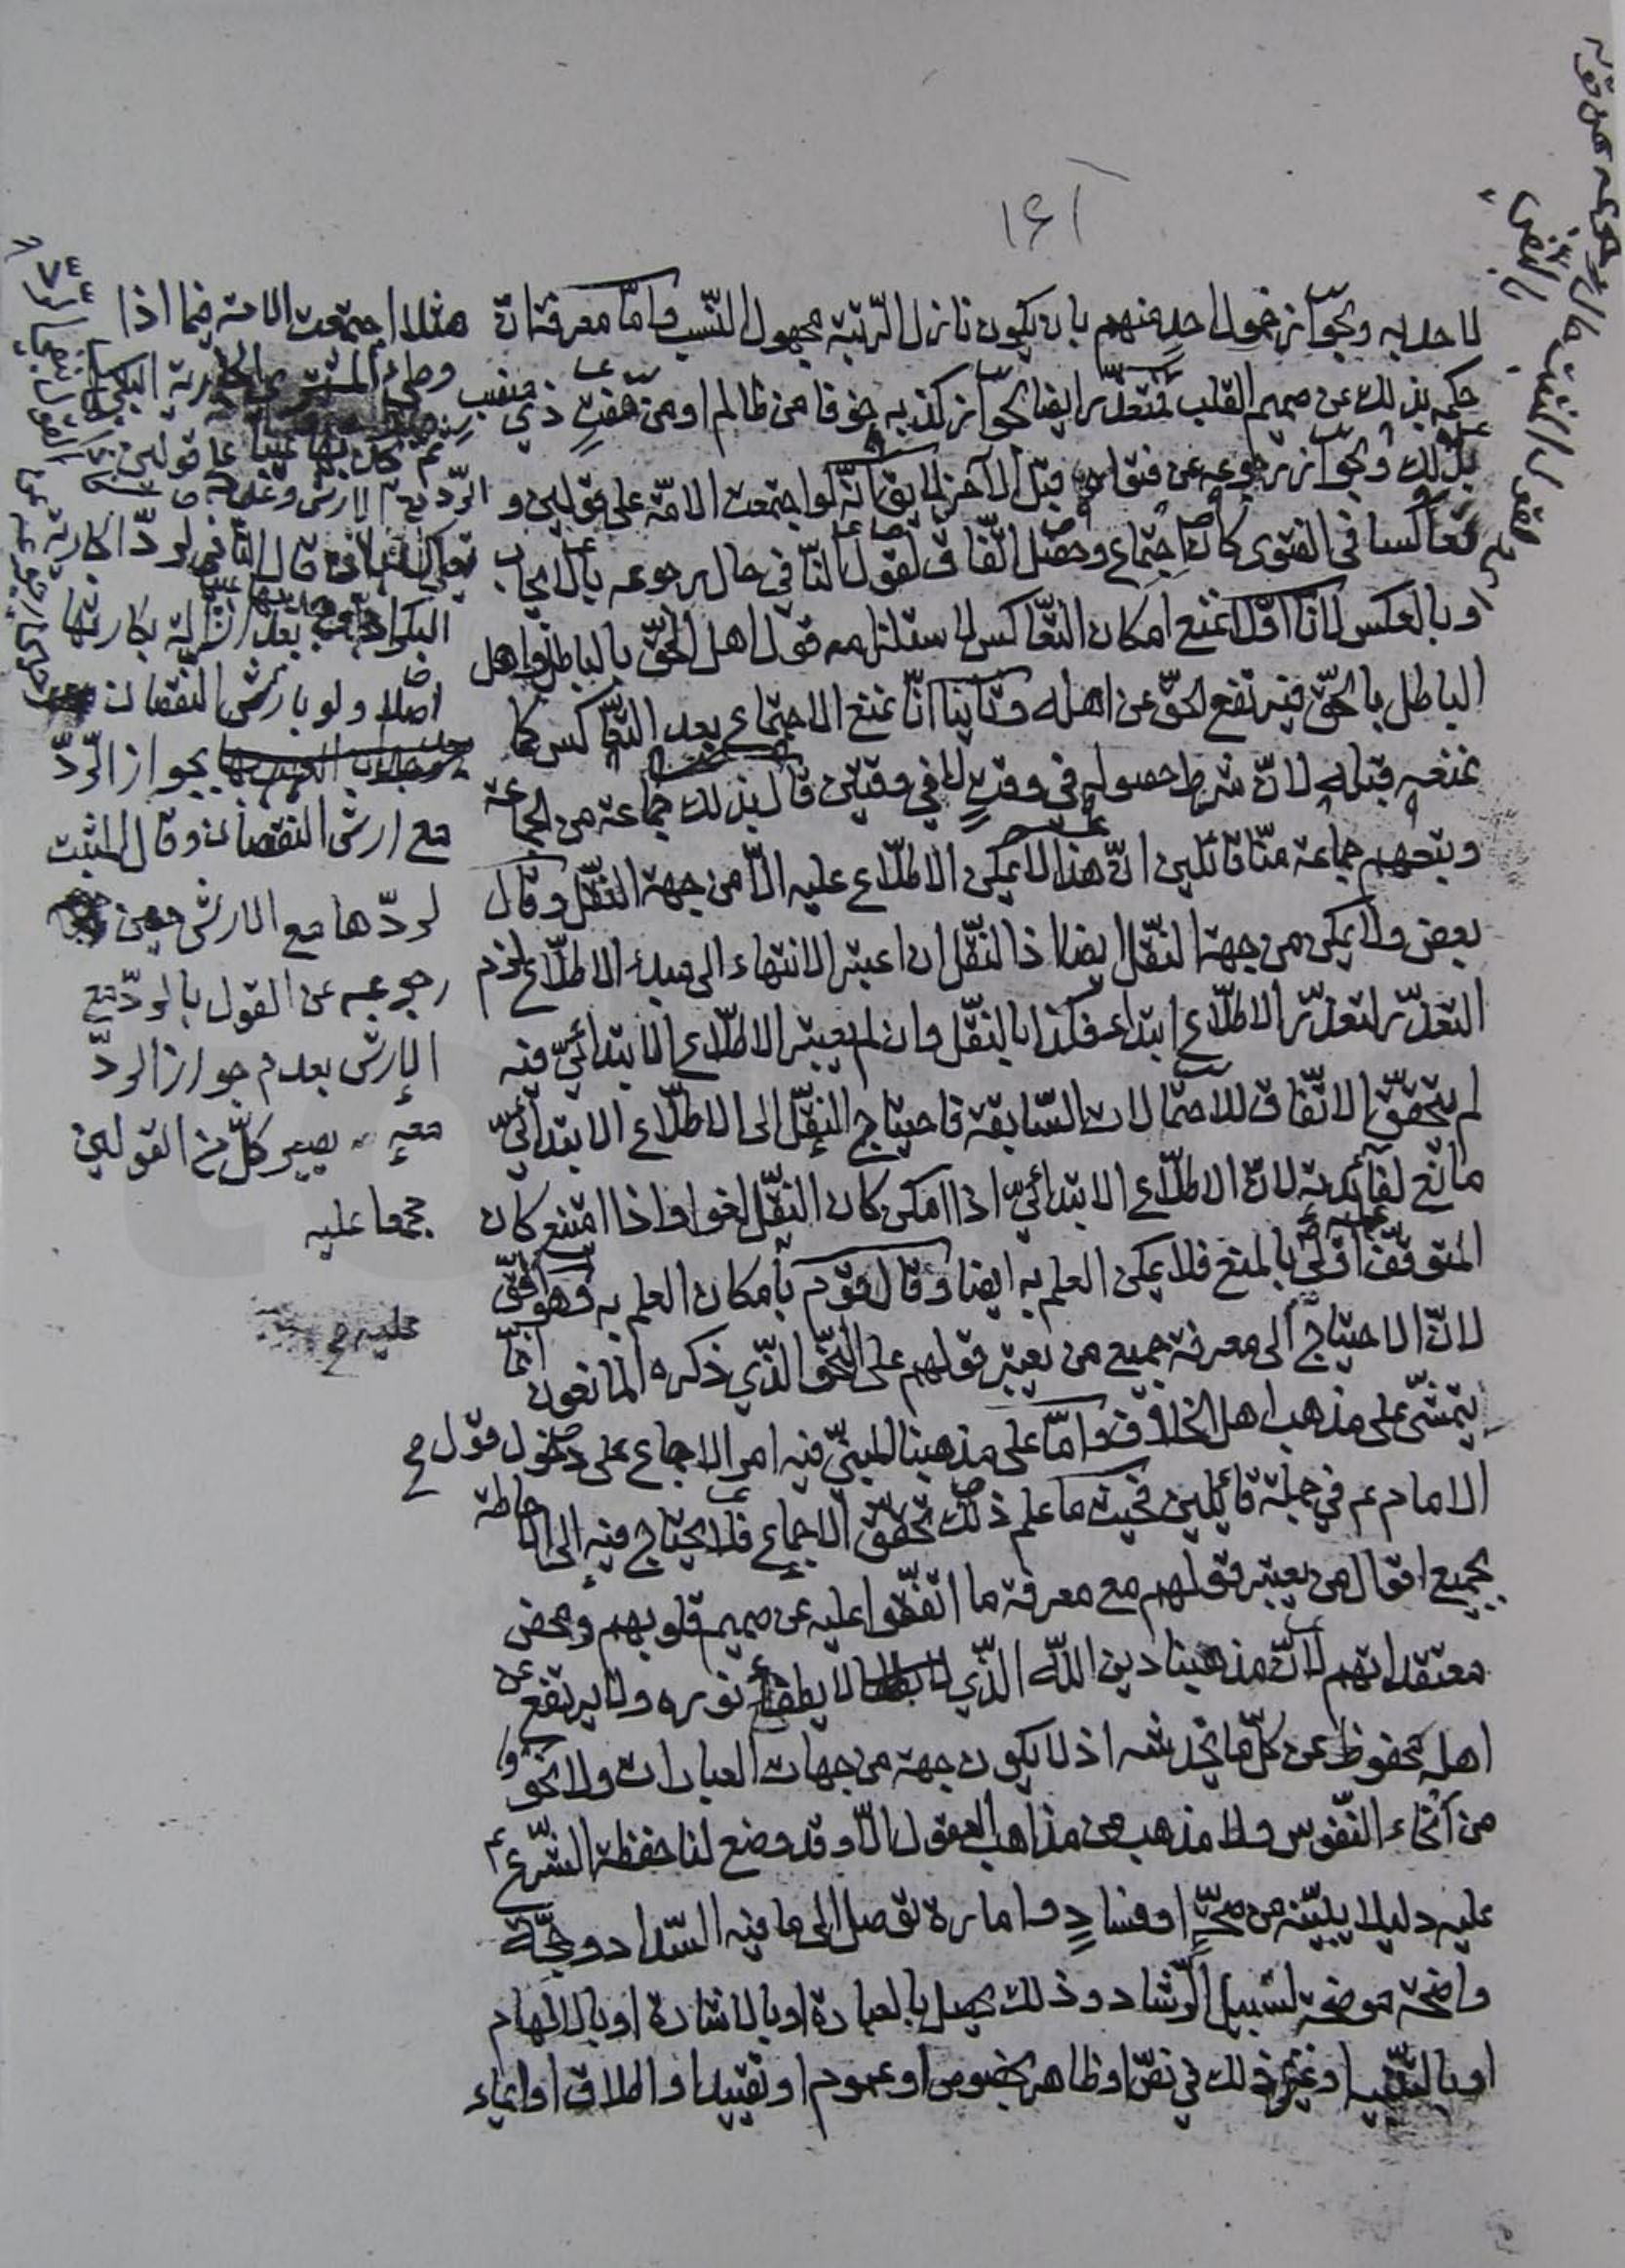 ١٤١
لاحد به ولجواز خمول احد منهم بان يكون نازل الرّتبة مجهول النّسب وامّا معرفة انّ
حكمه بذلك عن صميم القلب فمتعذّر ايضا لجواز كذبه خوفا من ظالم او من مفتٍ ذي منصب
بذلك ولجواز رجوعه عن فتواه قبل الآخر لا يق انّه لو اجتمعت الامّة على قولين و
تعاكسا في الفتوى كان اجتماع وحصل اتّفاق لقول النّافي حال رجوعه بالايجاب
او بالعكس لانّا اوّلا نمنع امكان التّعاكس لاستلزامه قول اهل الحقّ بالباطل واهل
الباطل بالحقّ فيرتفع الحقّ عن اهله وثانيا انّا نمنع الاجتماع بعد التّعاكس كما
نمنعه قبله لانّ شرط حصوله في وقتٍ لا في وقتين قال بذلك جماعة من العامّة
وتبعهم جماعة منّا قائلين انّ هذا لا يمكن الاطّلاع عليه الّا من جهة النّقل وقال
بعض ولا يمكن من جهة النّقل ايضا اذ النّقل ان اعتبر الانتهاء الى مبدء الاطّلاع لزم
التعذّر لتعذّر الاطّلاع ابتداء فكذا بالنقل وان لم يعتبر الاطّلاع الابتدائيّ فيه
لم يتحقّق الاتّفاق للاحتمالات السّابقة فاحتياج النقل الى الاطّلاع الابتدائيّ
مانع لفائدته لانّ الاطّلاع الابتدائيّ اذا امكن كان النقل لغوا واذا امتنع كان
المتوقّف عليه اولى بالمنع فلا يمكن العلم به ايضا وقال قوم بامكان العلم به وهو الحقّ
لانّ الاحتياج الى معرفة جميع من يعتبر قولهم على النّحو الّذي ذكره المانعون انّما
يتمشّى على مذهب اهل الخلاف وامّا على مذهبنا المبنيّ فيه امر الاجماع على دخول قول
الامام عم في جملة قائلين فحيث ما علم ذلك تحقّق الاجماع فلا يحتاج فيه الى الاحاطة
بجميع اقوال من يعتبر قولهم مع معرفة ما اتّفقوا عليه عن صميم قلوبهم ومحض
معتقداتهم لانّ مذهبنا دين اللّه الّذي لا يطفأ نوره ولا يرتفع عن
اهله محفوظ عن كلّ ما يخدشه اذ لا يكون جهة من جهات العبارات ولا نحو
من انحاء النّفوس ولا مذهب من مذاهب العقول الّا وقد وضع لنا حفظة الشّرع عم
عليه دليلا يبيّنه من صحّةٍ او فسادٍ وامارة توصل الى ما فيه السّداد وحجّة
واضحة موضحة لسبيل الرّشاد وذلك يحصل بالعبارة او بالاشارة او بالالهام
او بالتّنبيه او غير ذلك في نصّ او ظاهر بخصوص او عموم او تقييد او اطلاق او ايماء
مثلا اجتمعت الامة فيما اذا
وطئ المشتري الجارية البكر
ثم وجد بها عيبا على قولين
الردّ مع الارش وعدمه
البكر بعد ازالة بكارتها
اصلا ولو بارش النقصان
بجواز الردّ
مع ارش النقصان وقال المثبت
لردّها مع الارش حين
رجوعه عن القول بالردّ مع
الارش بعدم جواز الردّ
معه يصير كلّ من القولين
مجمعا عليه